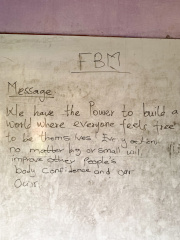 FBM
Message
We have the Power to build a
World where everyone feels free
to be themselves! Every action
no matter big or small will
improve other People's
body confidence and our
Own.